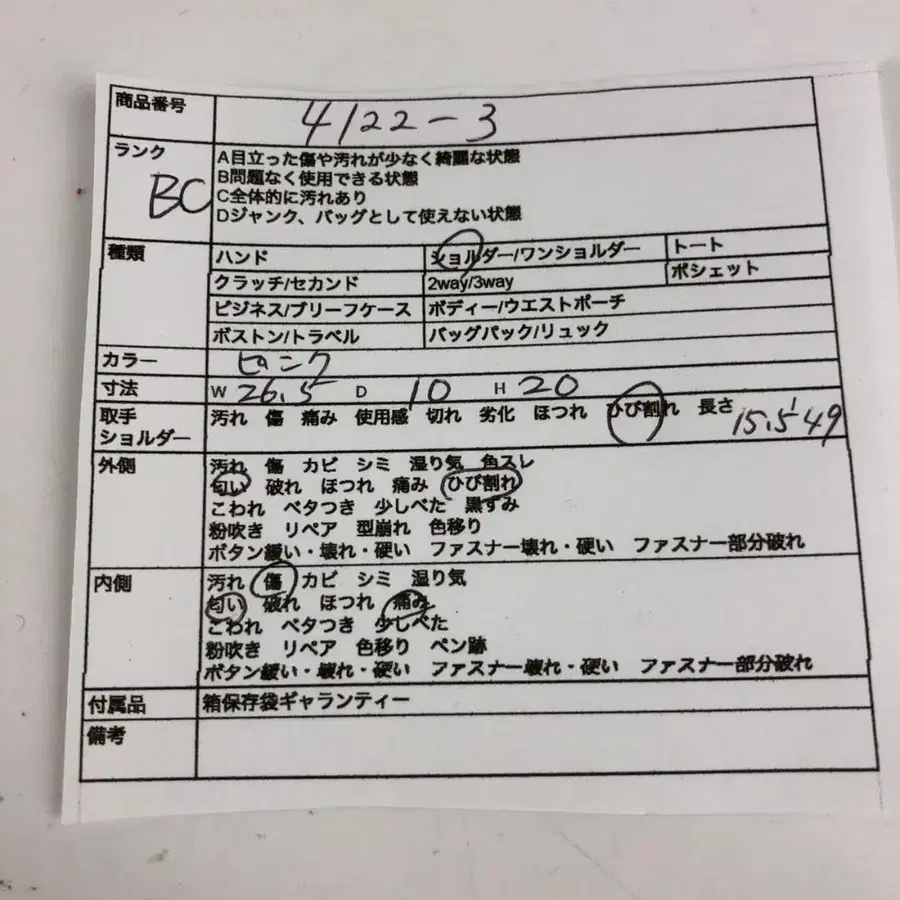 商品番号 4122-3
ランク BC
A目立った傷や汚れが少なく綺麗な状態
B問題なく使用できる状態
C全体的に汚れあり
Dジャンク、バッグとして使えない状態
種類 ハンド ショルダー/ワンショルダー トート
クラッチ/セカンド 2way/3way ポシェット
ビジネス/ブリーフケース ボディー/ウエストポーチ
ボストン/トラベル バッグパック/リュック
カラー ピンク
寸法 W 26.5 D 10 H 20
取手 汚れ 傷 痛み 使用感 切れ 劣化 ほつれ ひび割れ 長さ 15.5 49
ショルダー
外側 汚れ 傷 カビ シミ 湿り気 色スレ
匂い 破れ ほつれ 痛み ひび割れ
こわれ ベタつき 少しべた 黒ずみ
粉吹き リペア 型崩れ 色移り
ボタン緩い・壊れ・硬い ファスナー壊れ・硬い ファスナー部分破れ
内側 汚れ 傷 カビ シミ 湿り気
匂い 破れ ほつれ 痛み
こわれ ベタつき 少しべた
粉吹き リペア 色移り ペン跡
ボタン緩い・壊れ・硬い ファスナー壊れ・硬い ファスナー部分破れ
付属品 箱保存袋ギャランティー
備考